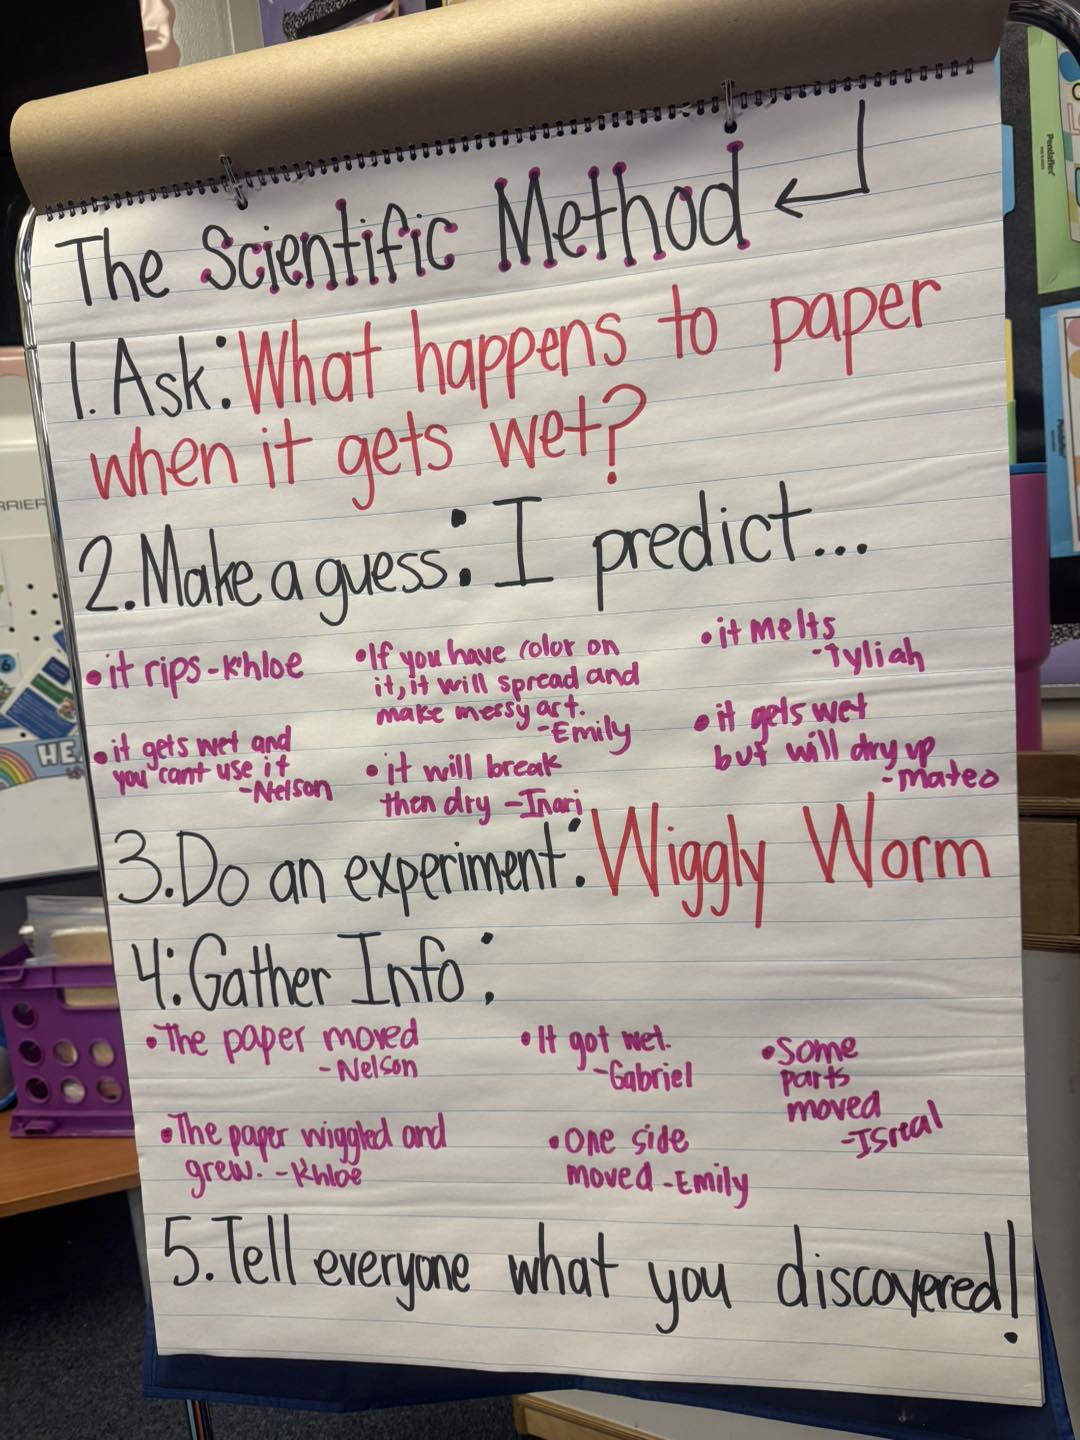 The Scientific Method
1. Ask: What happens to paper
when it gets wet?
2. Make a guess: I predict...
• it rips - Khloe
• it gets wet and
you can't use it
- Nelson
• If you have color on
it, it will spread and
make messy art.
- Emily
• it will break
then dry - Inari
• it melts
- Tyliah
• it gets wet
but will dry up
- Mateo
3. Do an experiment: Wiggly Worm
4. Gather Info:
• The paper moved
- Nelson
• The paper wiggled and
grew. - Khloe
• It got wet.
- Gabriel
• One side
moved - Emily
• Some
parts
moved
- Isreal
5. Tell everyone what you discovered!
Pendaflex
HEA
6